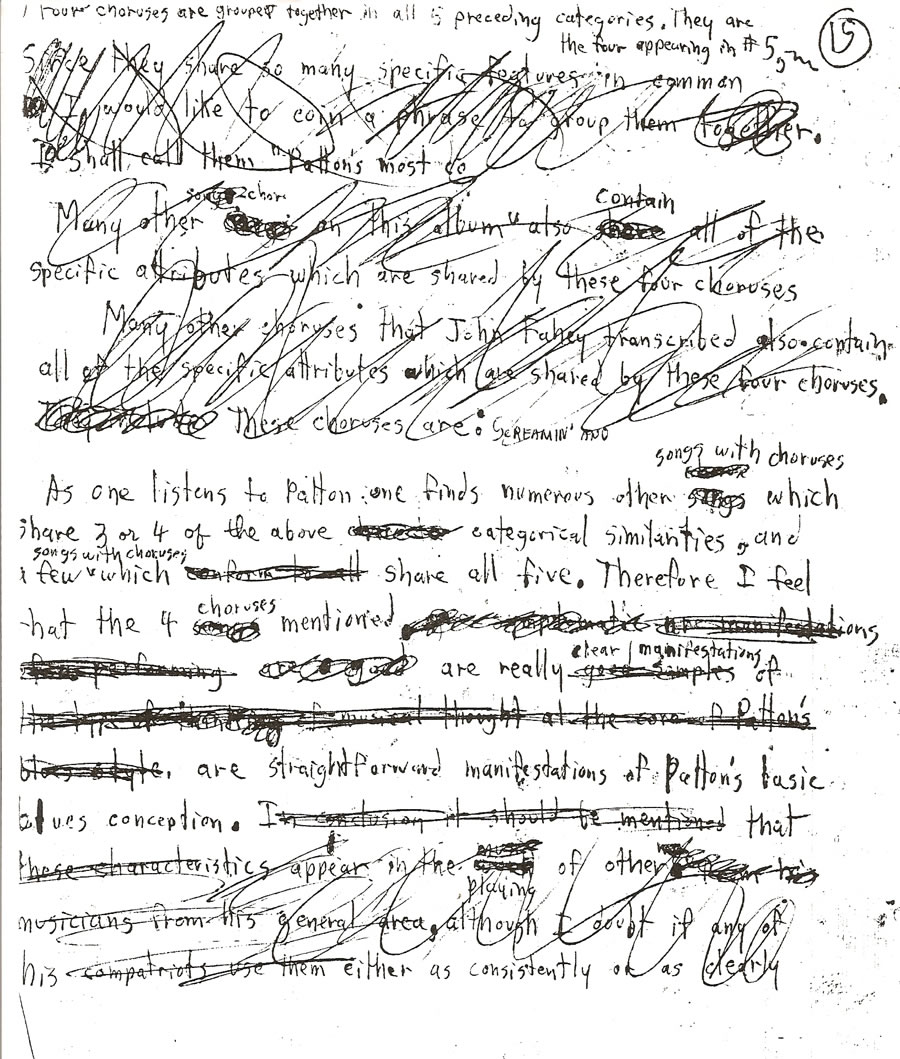 four choruses are grouped together in all 5 preceding categories. They are
the four appearing in # 5,
15
Since they share so many specific features in common
I would like to coin a phrase to group them together.
I shall call them "Patton's most co
songs chor
contain
Many other on this album also share all of the
specific attributes which are shared by these four choruses
Many other choruses that John Fahey transcribed also contain
all of the specific attributes which are shared by these four choruses.
These choruses are: SCREAMIN' AND
songs with choruses
As one listens to Patton one finds numerous other songs which
share 3 or 4 of the above categorical similarities, and
songs with choruses
few which conform to all share all five. Therefore I feel
choruses
that the 4 songs mentioned are manifestations
clear manifestations
performing are good are really good examples of
the type of musical thought at the core of Patton's
blues style. are straightforward manifestations of Patton's basic
blues conception. In conclusion it should be mentioned that
music
these characteristics appear in the of other
playing
musicians from his general area, although I doubt if any of
his compatriots use them either as consistently or as clearly